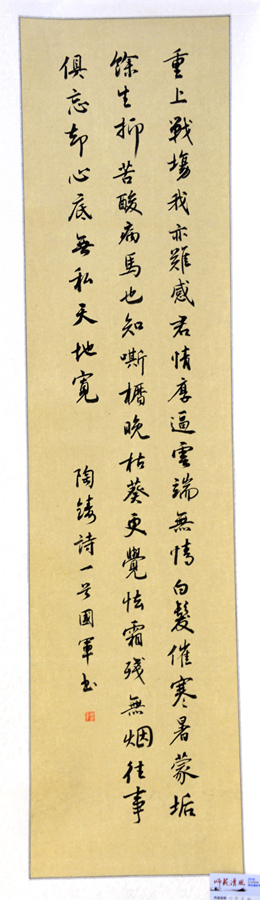 重上戰場我亦難感君情厚逼雲端無情白髮催寒暑蒙垢
餘生抑苦酸病馬也知嘶櫪晚枯葵更覺怯霜殘無烟往事
俱忘却心底無私天地寬
陶鑄詩一首國軍书
師范清風